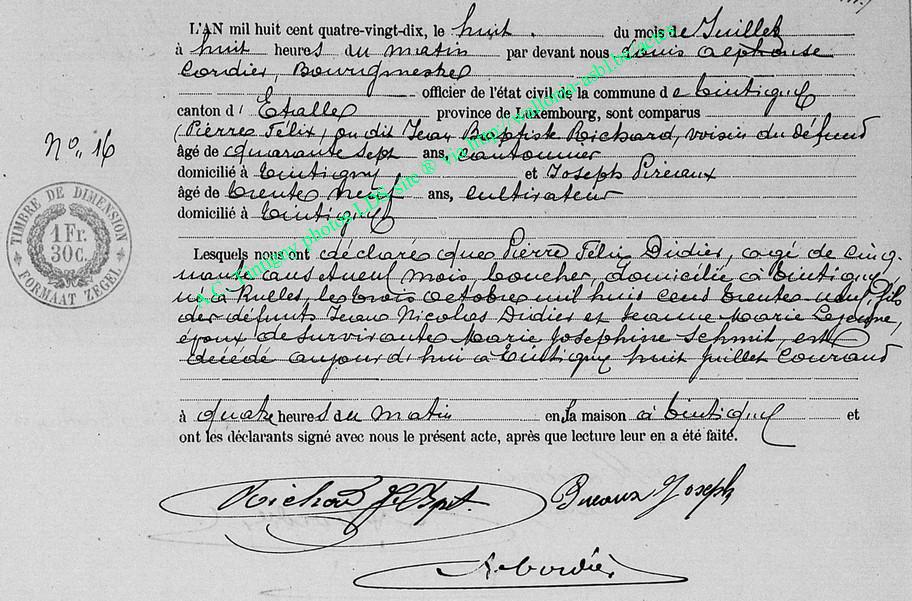 L'AN mil huit cent quatre-vingt-dix, le huit du mois de Juillet
à huit heures du matin par devant nous Louis Alphonse
Cordier, Bourgmestre
officier de l'état civil de la commune de Tintigny
canton d'Etalle province de Luxembourg, sont comparus
Pierre Félix, ou dit Jean Baptiste Roichard, voisin du défunt
âgé de quarante sept ans, cantonnier
domicilié à Tintigny et Joseph
âgé de trente neuf ans, cultivateur
domicilié à Tintigny
No. 16
TIMBRE DE DIMENSION
1 Fr.
30C.
FORMAAT ZEGEL
Lesquels nous ont déclaré que Pierre Félix Didier, agé de cinq-
uante ans et neuf mois, boucher, domicilié à Tintigny
né à Rulles, le trois octobre mil huit cent trente neuf, fils
des défunts Jean Nicolas Didier et Jeanne Marie Lejeune,
époux de survivante Marie Josephine Schmit, est
décédé aujourd'hui à Tintigny huit juillet courant
à quatre heures du matin en la maison à Tintigny et
ont les déclarants signé avec nous le présent acte, après que lecture leur en a été faite.
Joseph
A. C. Tintigny photos LDS site ® via http://wallonia-asbl.be/actes